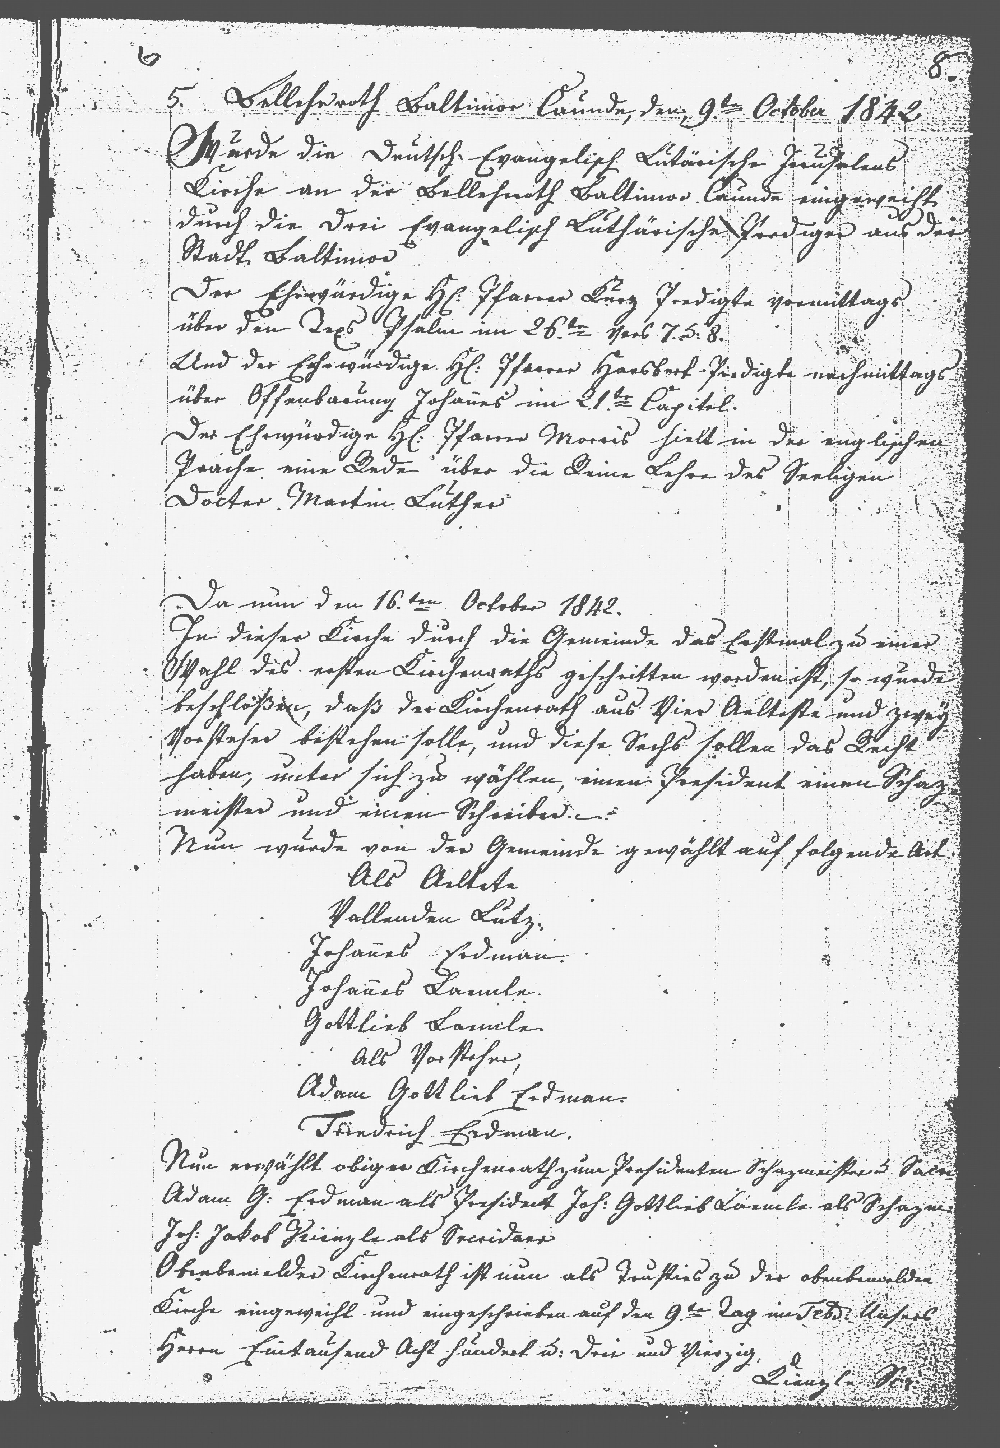 6
8.
5. Bellehrroth Baltimor Caunde, den 9.ten October 1842
Wurde die Deutsch-Evangelisch Lutärische Jerusalems
Kirche an der Bellehrroth Baltimor Caunde eingeweiht
durch die Drei Evangelisch Luthärische Prediger aus der
Stadt Baltimor
Der Ehrwürdige H: Pfarrer Predigte vormittags
über den Texs Psalm im 26.ten Vers 7. & 8.
Und der Ehrwürdige H: Pfarrer Predigte nachmittags
über Offenbarung Johañes im 21.ten Capitel.
Der Ehrwürdige H: Pfarrer Morris hielt in der englischen
Prache eine Rede über die Reine Lehre des Seeligen
Docter Martin Luther
Da nun den 16.ten October 1842.
In dieser Kirche durch die Gemeinde das Erstmal zu einer
Wahl des ersten Kirchenraths geschritten worden ist, so wurde
beschloßen, daß der Kirchenrath aus Vier Aelteste und zwey
Vorsteher bestehen solle, und diese Sechs sollen das Recht
haben, unter sich zu wählen, einen President einen Schaz-
meister und einen Schreiber.
Nun wurde von der Gemeinde gewählt auf folgende Art.
Als Aeltete
Vallenden Lutz.
Johañes Erdman.
Johañes Laemle.
Gottlieb Lamile
Als Vorsteher,
Adam Gottlieb Erdman.
Friedrich Erdman.
Nun erwählt obiger Kirchenrath zum Presidenten Schazmeister u.
Adam G: Erdman als President Joh: Gottlieb Laemle als Schazme
Joh: Jakob Kienzle als Secridaer
Obenbemelder Kirchenrath ist nun als Trusties zu der obenbemelden
Kirche eingeweiht und eingeschrieben auf den 9.ten Tag im Feb: Unsers
Herrn Eintausend Acht hundert u: Drei und Vierzig.
Kienzle Sec.